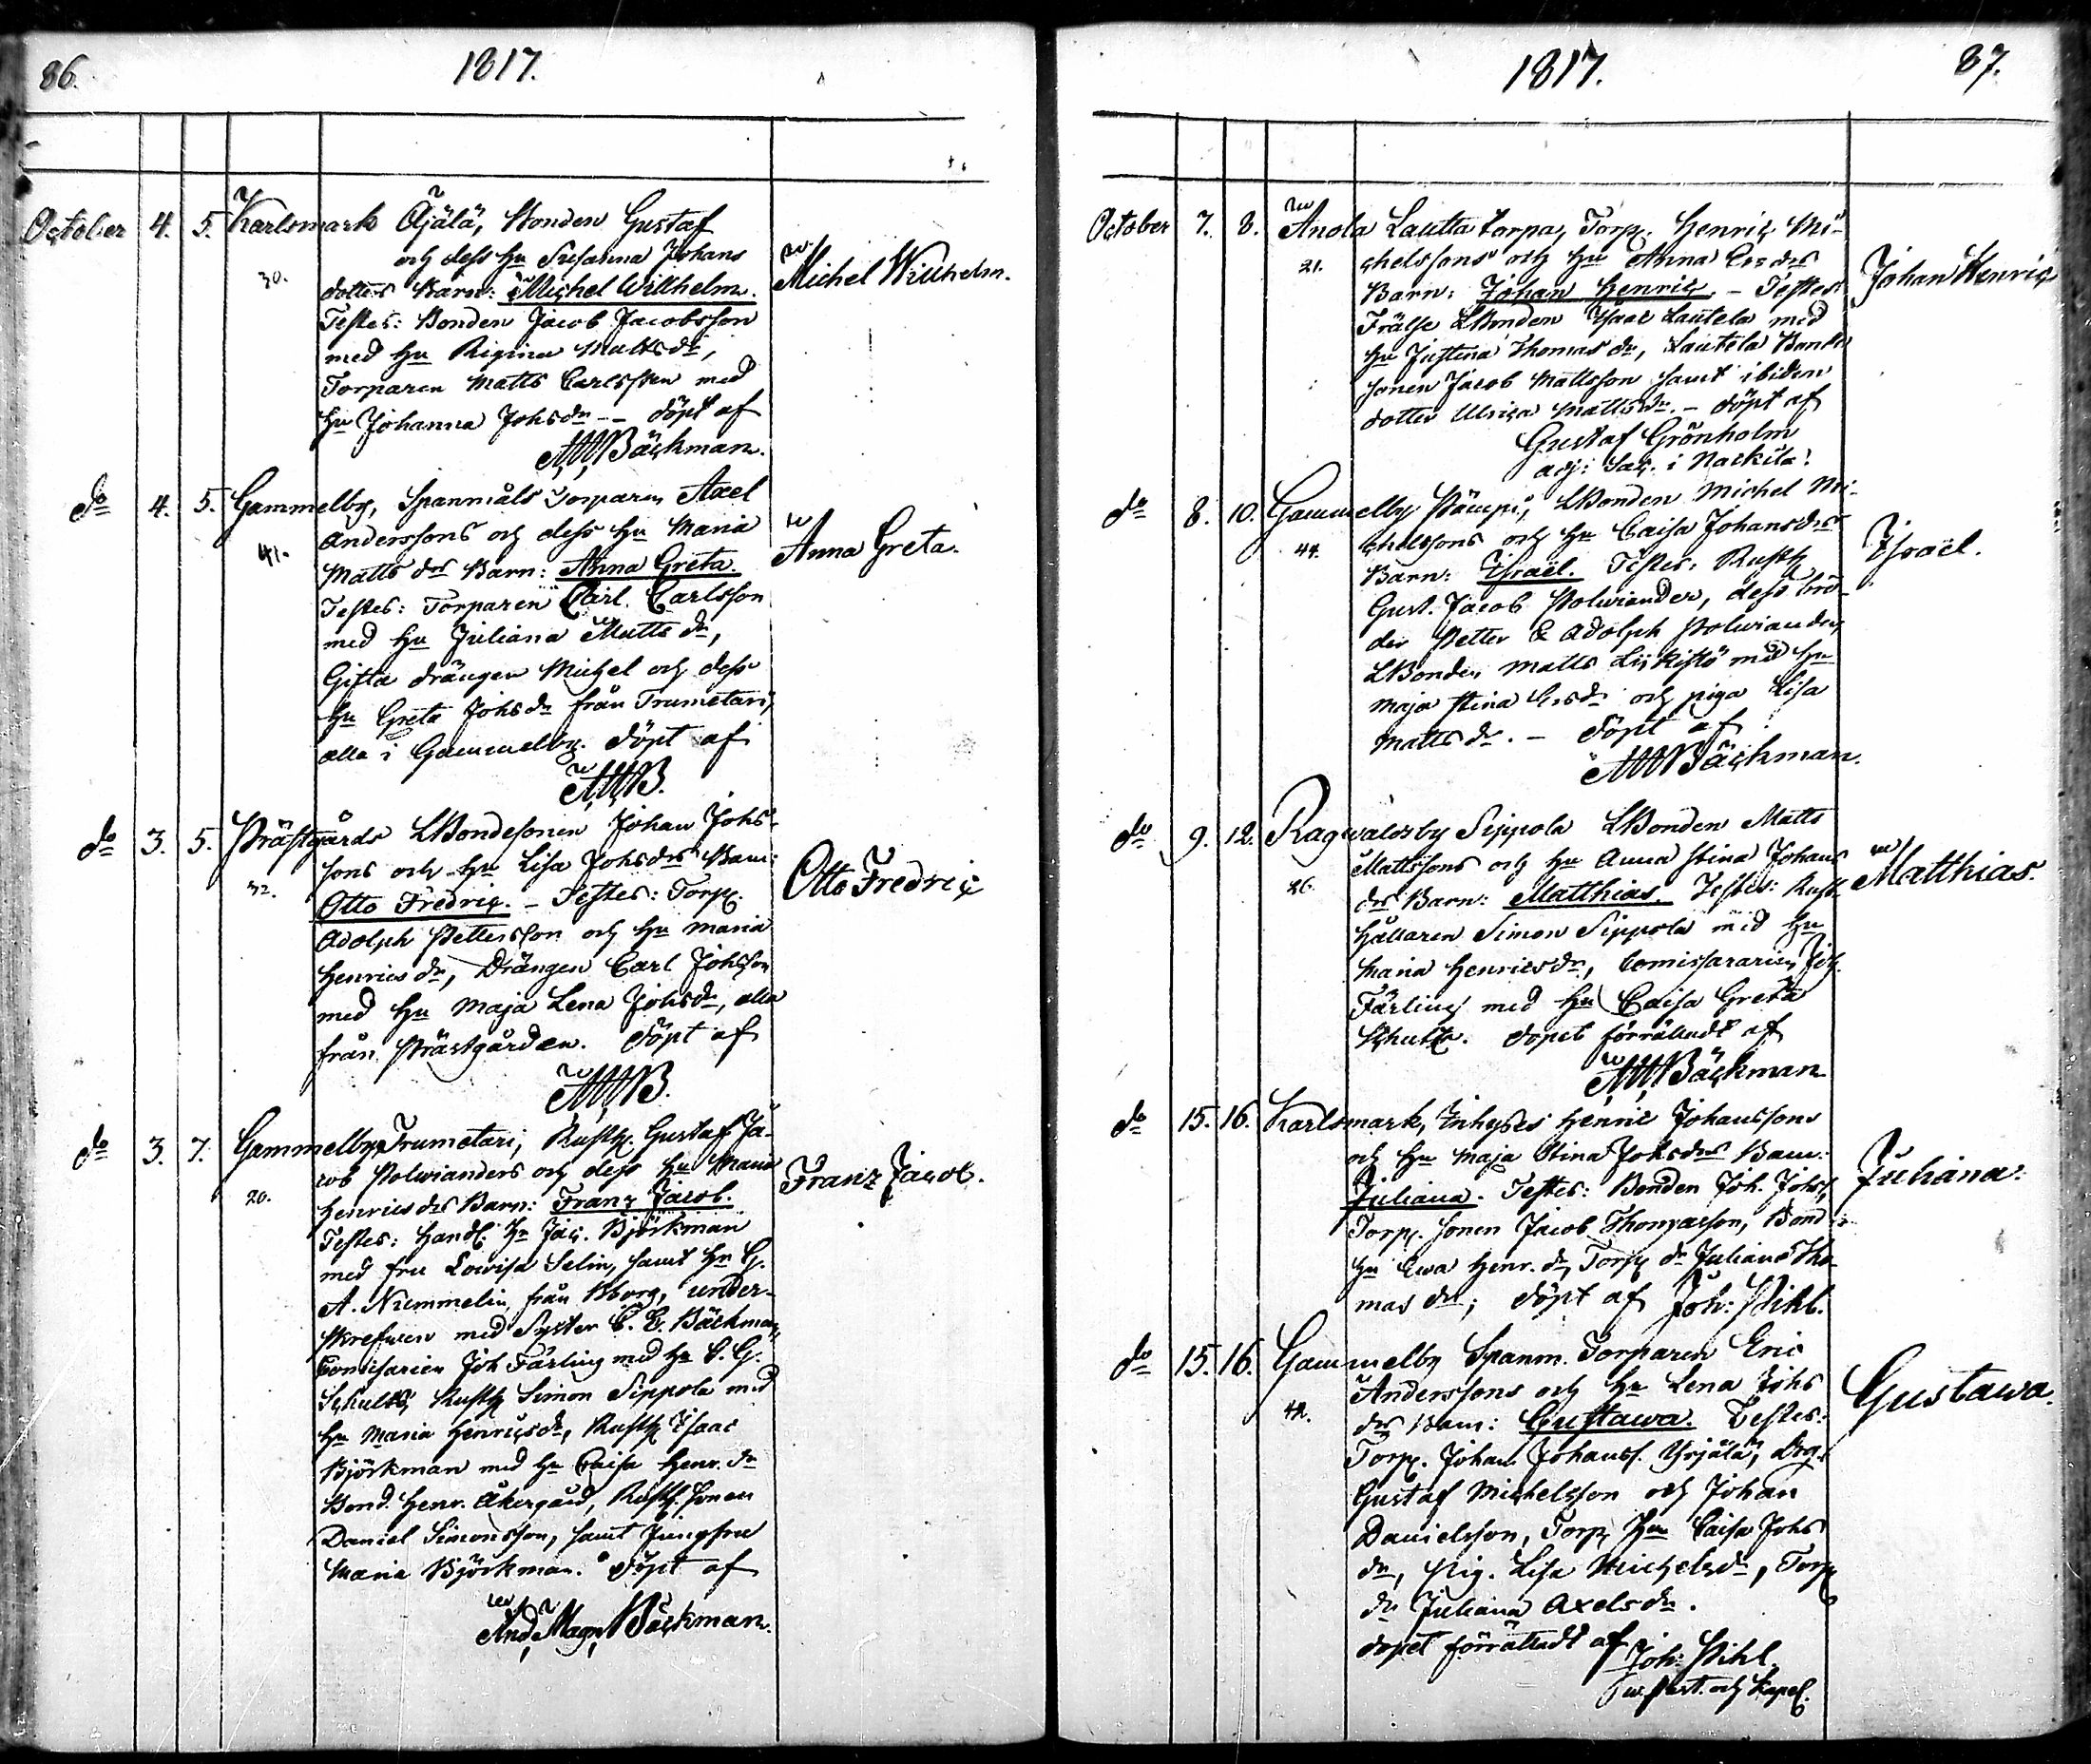 86.
1817.
October 4. 5. Karlsmark Äjälä, Bonden Gustaf
och dess hu Susanna Johans
30. dotters Barn: Michel Willhelm. Michel Willhelm.
Testes: Bonden Jacob Jacobsson
med hu Regina Mattsdr,
Torparen Matts Carlsson med
hu Johanna Johsdr -- döpt af
AMBäckman.
do 4. 5. Gammelby, Spanmåls Torparen Axel
Anderssons och dess hu Maria
41. Matts drs Barn: Anna Greta. Anna Greta.
Testes: Torparen Carl Carlsson
med hu Juliana Matts dr,
Gifta drängen Michel och dess
hu Greta Johsdr från Trumetari,
alla i Gammelby. döpt af
AMB.
do 3. 5. Prästgårds LBondesonen Johan Johs-
sons och hu Lisa Johsdrs Barn:
32. Otto Fredric. - Testes: Torp. Otto Fredric
Adolph Pettersson och hu Maria
Henricsdr, Drängen Carl Johsson
med hu Maja Lena Johsdr, alla
från Prästgården. döpt af
AMB.
do 3. 7. Gammelby Trumetari, Rusth. Gustaf Ja-
cob Polvianders och dess hu Maria
20. Henricsdrs Barn: Franz Jacob. Franz Jacob.
Testes: Handl. Hr Jac. Björkman
med fru Lowisa Selin, samt Hr G.
A. Nummelin från Bborg, under-
skrefwen med Syster C. E. Bäckman,
Comissarien Joh Färling med hu C. G.
Schultz, Rusth Simon Sippola med
hu Maria Henricsdr, Rusth Isaac
Björkman med hu Caisa Henr. dr
Bond. Henr. Åkergård, Rusth. sonen
Daniel Simonsson, samt Jungfru
Maria Björkman. döpt af
And. Magn. Bäckman.
1817.
87.
October 7. 8. Anola Lautta torpa, Torp. Henric Mi-
21. chelssons och hu Anna Ersdrs
Barn: Johan Henric. - Testes Johan Henric
Frälse LBonden Isaac Lautela med
hu Justina Thomasdr, Lautela Bonde
sonen Jacob Mattsson samt ibidem
dotter Ulrica Mattsdr. - döpt af
Gustaf Grönholm
adj: Sac. i Nackila.
do 8. 10. Gammelby Pämpi, LBonden Michel Mi-
44. chelssons och hu Caisa Johansdrs
Barn: Israël. Testes: Rusth Israël.
Gust. Jacob Polviander, dess brö-
der Petter & Adolph Polviander,
LBonden Matts Liskistö med hu
Maja Stina Ersdr och piga Lisa
Mattsdr. - döpt af
AMBäckman.
do 9. 12. Ragwaldsby Sippola LBonden Matts
Mattssons och hu Anna Stina Johans
26. drs Barn: Matthias. Testes: Rust- Matthias.
hållaren Simon Sippola med hu
Maria Henricsdr, Comissararien Joh.
Färling med hu Caisa Greta
Schultz. dopet förrättadt af
AMBäckman
do 15. 16. Karlsmark, Inhyses Henric Johanssons
och hu Maja Stina Johsdrs Barn:
Juliana. Testes: Bonden Joh. Johss, Juliana.
Torp. sonen Jacob Thomasson, Bond
hu Ewa Henr. dr, Torp dr Juliana Tho-
mas dr; döpt af Joh: Pihl.
do 15. 16. Gammelby Spanm. Torparen Eric
Anderssons och hu Lena Johs
42. drs Barn: Gustawa. Testes: Gustawa.
Torp. Johan Johanss. Yrjälä, Drg.
Gustaf Michelsson och Johan
Danielsson, Torp. hu Caisa Johs
dr, Pig. Lisa Michelsdr, Torp
dr Juliana Axelsdr.
dopet förrättadt af
Joh: Pihl.
w. Past. och Kapel.